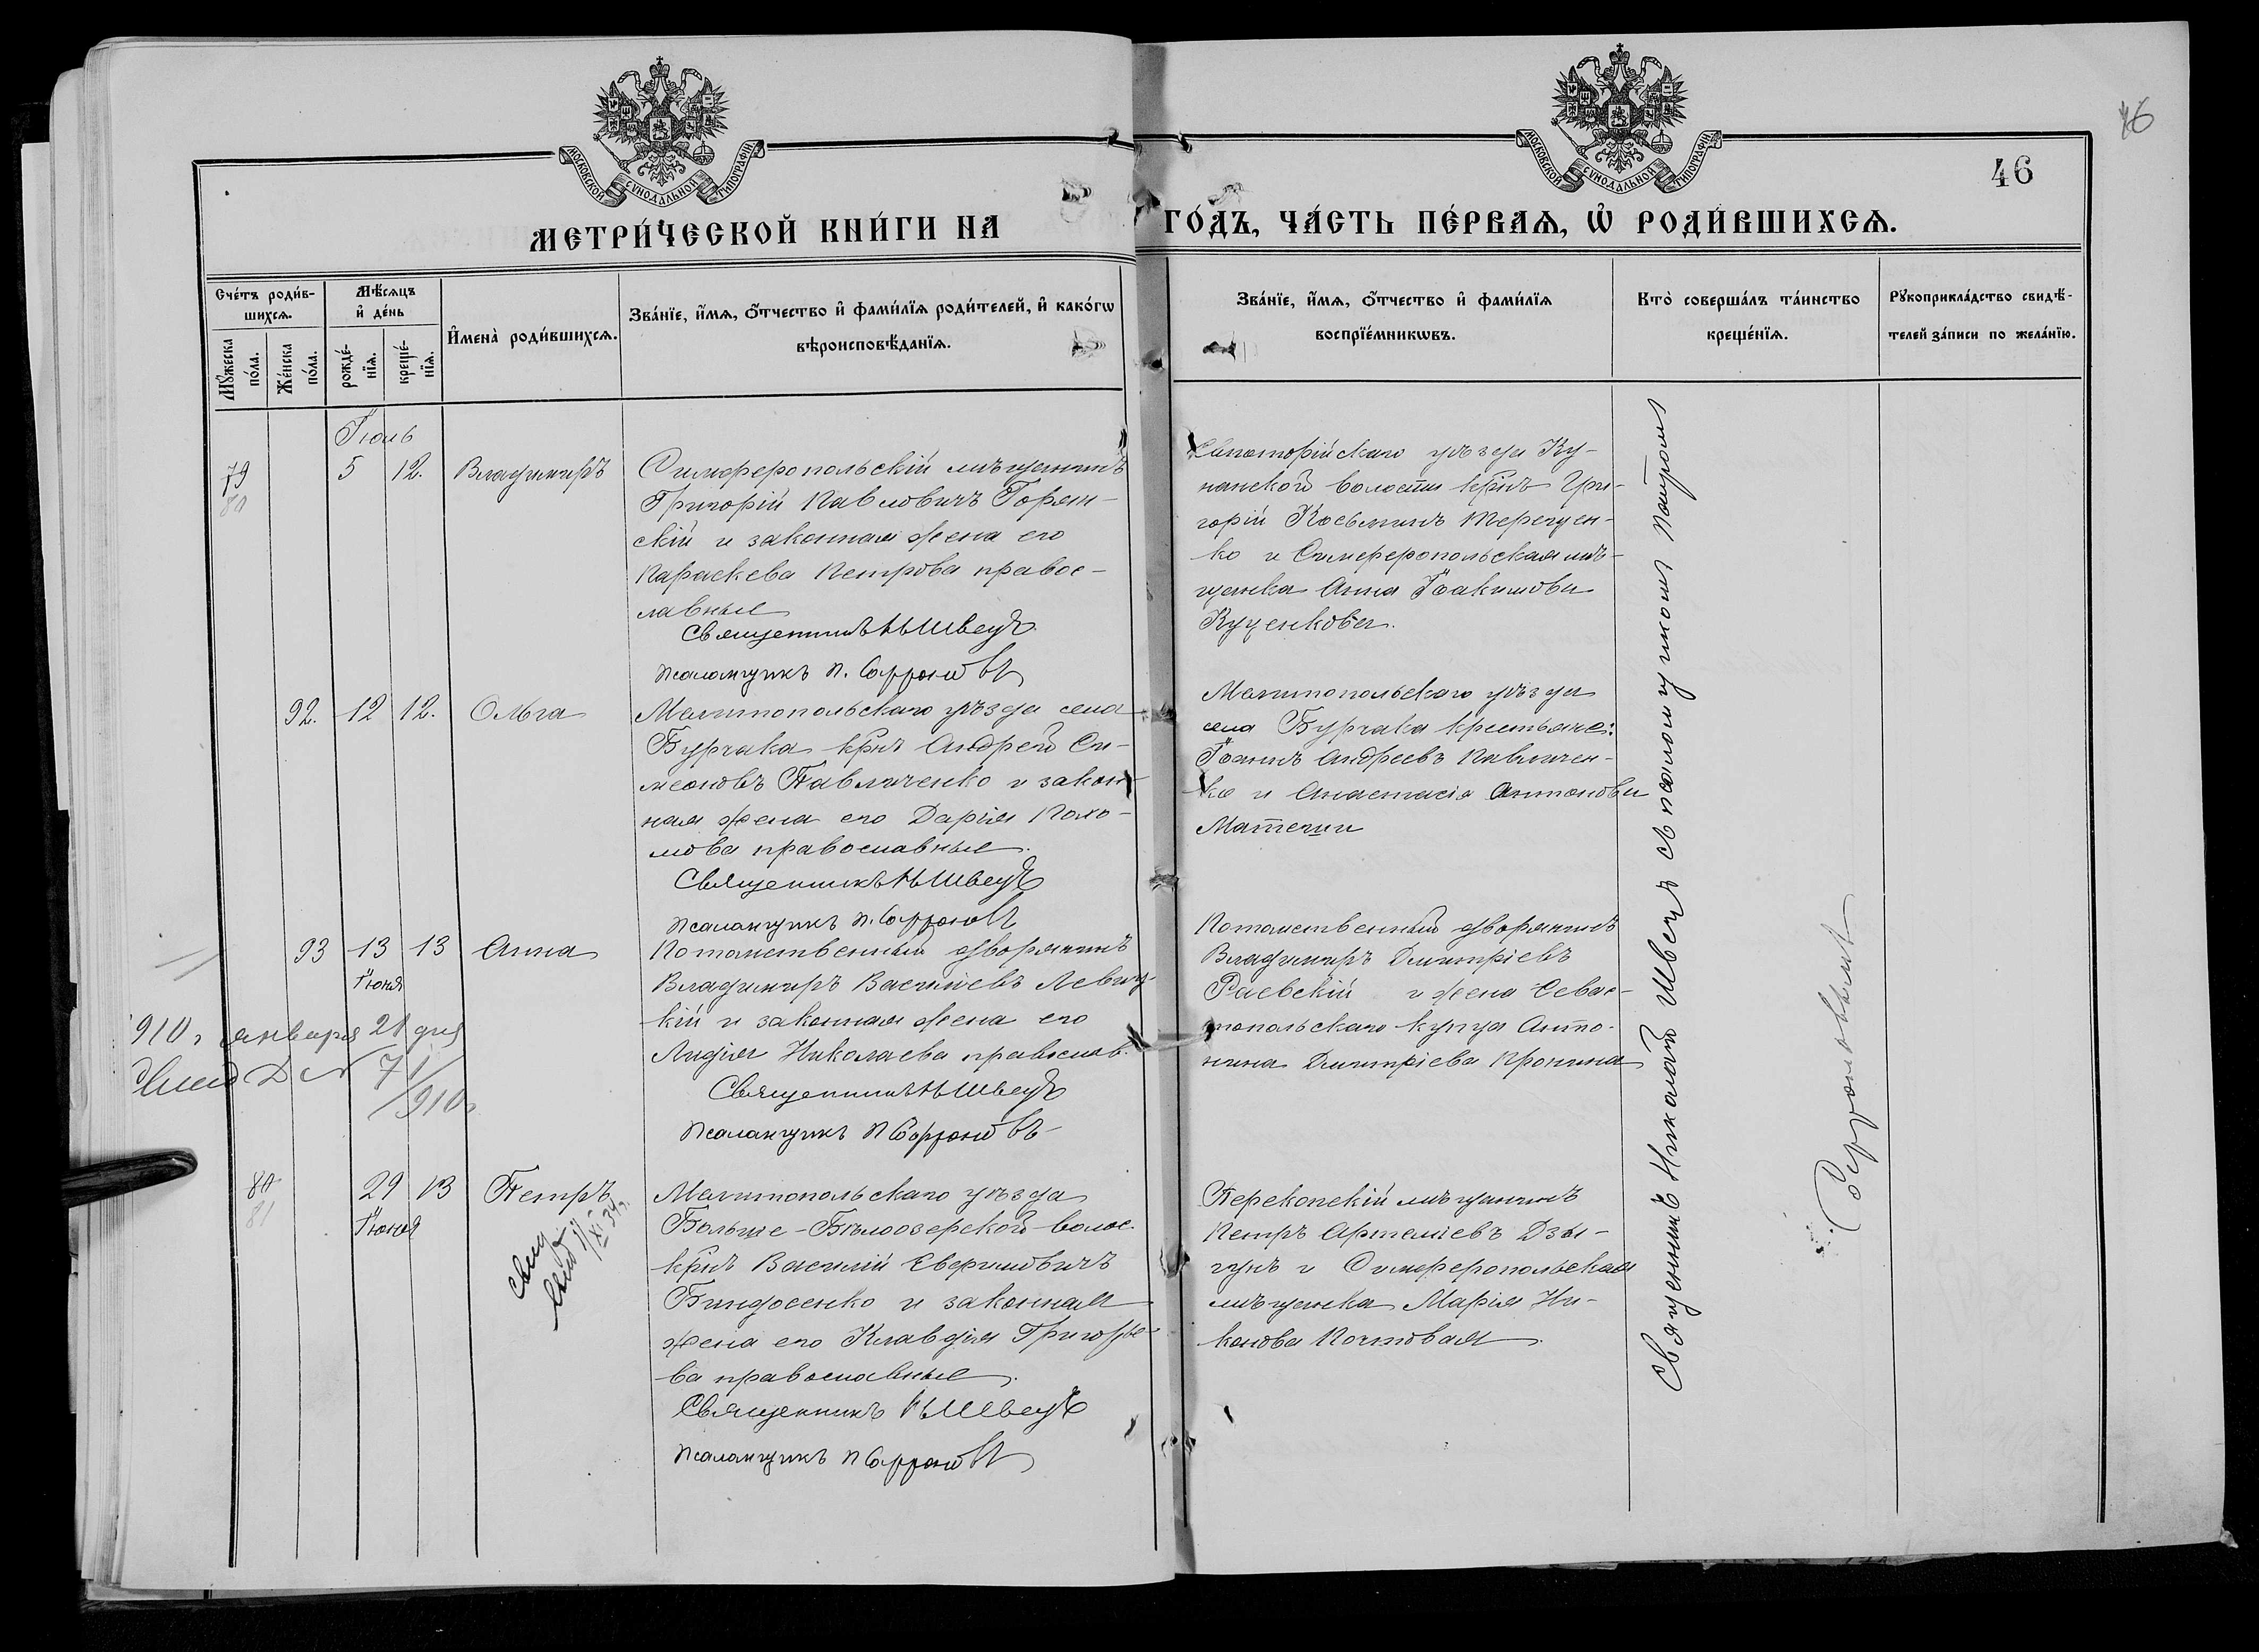 МОСКОВСКОЙ СѴНОДАЛЬНОЙ ТИПОГРАФІИ
МОСКОВСКОЙ СѴНОДАЛЬНОЙ ТИПОГРАФІИ
46
46
МЕТРИ́ЧЕСКОЙ КНИ́ГИ НА ГО́ДЪ, ЧА́СТЬ ПЕ́РВАѦ, Ѡ҆ РОДИ́ВШИХСѦ.
Сче́тъ роди́в-
шихсѧ.
Мꙋ́жеска по́ла.
Же́нска по́ла.
Мѣ́сѧцъ
и҆ де́нь
рожде́-
нїѧ.
креще́-
нїѧ.
И҆мена̀ роди́вшихсѧ.
Зва́нїе, и҆́мѧ, ѻ҆́тчество и҆ фами́лїѧ роди́телей, и҆ како́гѡ
вѣроисповѣ́данїѧ.
Зва́нїе, и҆́мѧ, ѻ҆́тчество и҆ фами́лїѧ
воспрїе́мникѡвъ.
Кто̀ соверша́лъ та́инство
креще́нїѧ.
Рꙋкоприкла́дство свидѣ́-
телей за́писи по жела́нїю.
Іюль
79
80
5 12. Владимиръ
Симферопольскій мѣщанинъ
Григорій Павловичъ Горян-
скій и законная жена его
Параскева Петрова правос-
лавные
Священникъ Н Швецъ
Псаломщикъ П. Софроновъ
Евпаторійскаго уѣзда Ку-
нанской волости крнъ Гри-
горій Косьминъ Терещен-
ко и Симферопольская мѣ-
щанка Анна Іоакимова
Куценкова.
92. 12 12. Ольга
Мелитопольскаго уѣзда села
Бурчака крнъ Андрей Си-
меоновъ Павличенко и закон-
ная жена его Дарія
мова православные.
Священникъ Н Швецъ
Псаломщикъ П. Софроновъ
Мелитопольскаго уѣзда
села Бурчака крестьяне:
Іоаннъ Андреевъ Павличен-
ко и Анастасія Антонова
93 13 13 Анна
Іюня
Потомственный дворянинъ
Владимиръ Васильевъ Левиц-
кій и законная жена его
Лидія Николаева православ.
Священникъ Н Швецъ
Псаломщикъ П Софроновъ
Потомственный дворянинъ
Владимиръ Димитріевъ
Раевскій и жена Севас-
топольскаго купца Анто-
нина Димитріева Пронина
910 г января 21 дня
71
/910
80
81
29 13 Петръ
Іюня
Мелитопольскаго уѣзда
Больше-Бѣлозерской волос.
крнъ Василій
Биндосенко и законная
жена его Клавдія Григорье-
ва православные.
Священникъ Н Швецъ
Псаломщикъ П Софроновъ
Перекопскій мѣщанинъ
Петръ Артеміевъ Дзы-
гунъ и Симферопольская
мѣщанка Марія Ни-
конова Почтовая.
Священникъ Николай Швецъ съ псаломщикомъ Петромъ
Софроновымъ